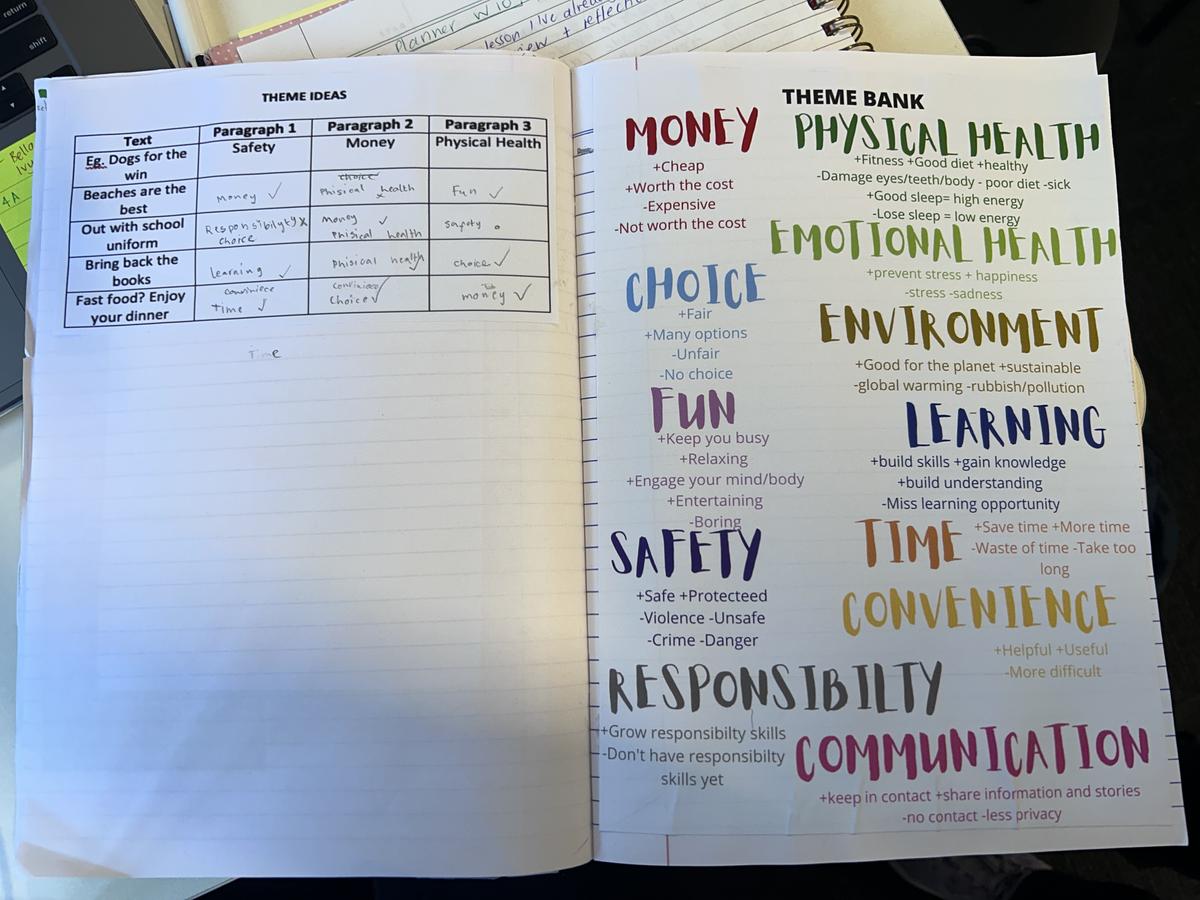 return
shift
Planner W10
lesson I've alread
view + reflectio
Bella
Ivy
4A
THEME IDEAS
Text Paragraph 1 Paragraph 2 Paragraph 3
Eg. Dogs for the win Safety Money Physical Health
Beaches are the best money ✓ choice Phisical health x Fun ✓
Out with school uniform Responsibilyty x choice money ✓ Phisical health safoty .
Bring back the books learning ✓ Phisical health choice ✓
Fast food? Enjoy your dinner conviniece Time ✓ conviniece Choice ✓ money ✓
Time
THEME BANK
MONEY
+Cheap
+Worth the cost
-Expensive
-Not worth the cost
PHYSICAL HEALTH
+Fitness +Good diet +healthy
-Damage eyes/teeth/body - poor diet -sick
+Good sleep= high energy
-Lose sleep = low energy
EMOTIONAL HEALTH
+prevent stress + happiness
-stress -sadness
CHOICE
+Fair
+Many options
-Unfair
-No choice
ENVIRONMENT
+Good for the planet +sustainable
-global warming -rubbish/pollution
FUN
+Keep you busy
+Relaxing
+Engage your mind/body
+Entertaining
-Boring
LEARNING
+build skills +gain knowledge
+build understanding
-Miss learning opportunity
SAFETY
+Safe +Protecteed
-Violence -Unsafe
-Crime -Danger
TIME
+Save time +More time
-Waste of time -Take too
long
CONVENIENCE
+Helpful +Useful
-More difficult
RESPONSIBILTY
+Grow responsibilty skills
-Don't have responsibilty
skills yet
COMMUNICATION
+keep in contact +share information and stories
-no contact -less privacy